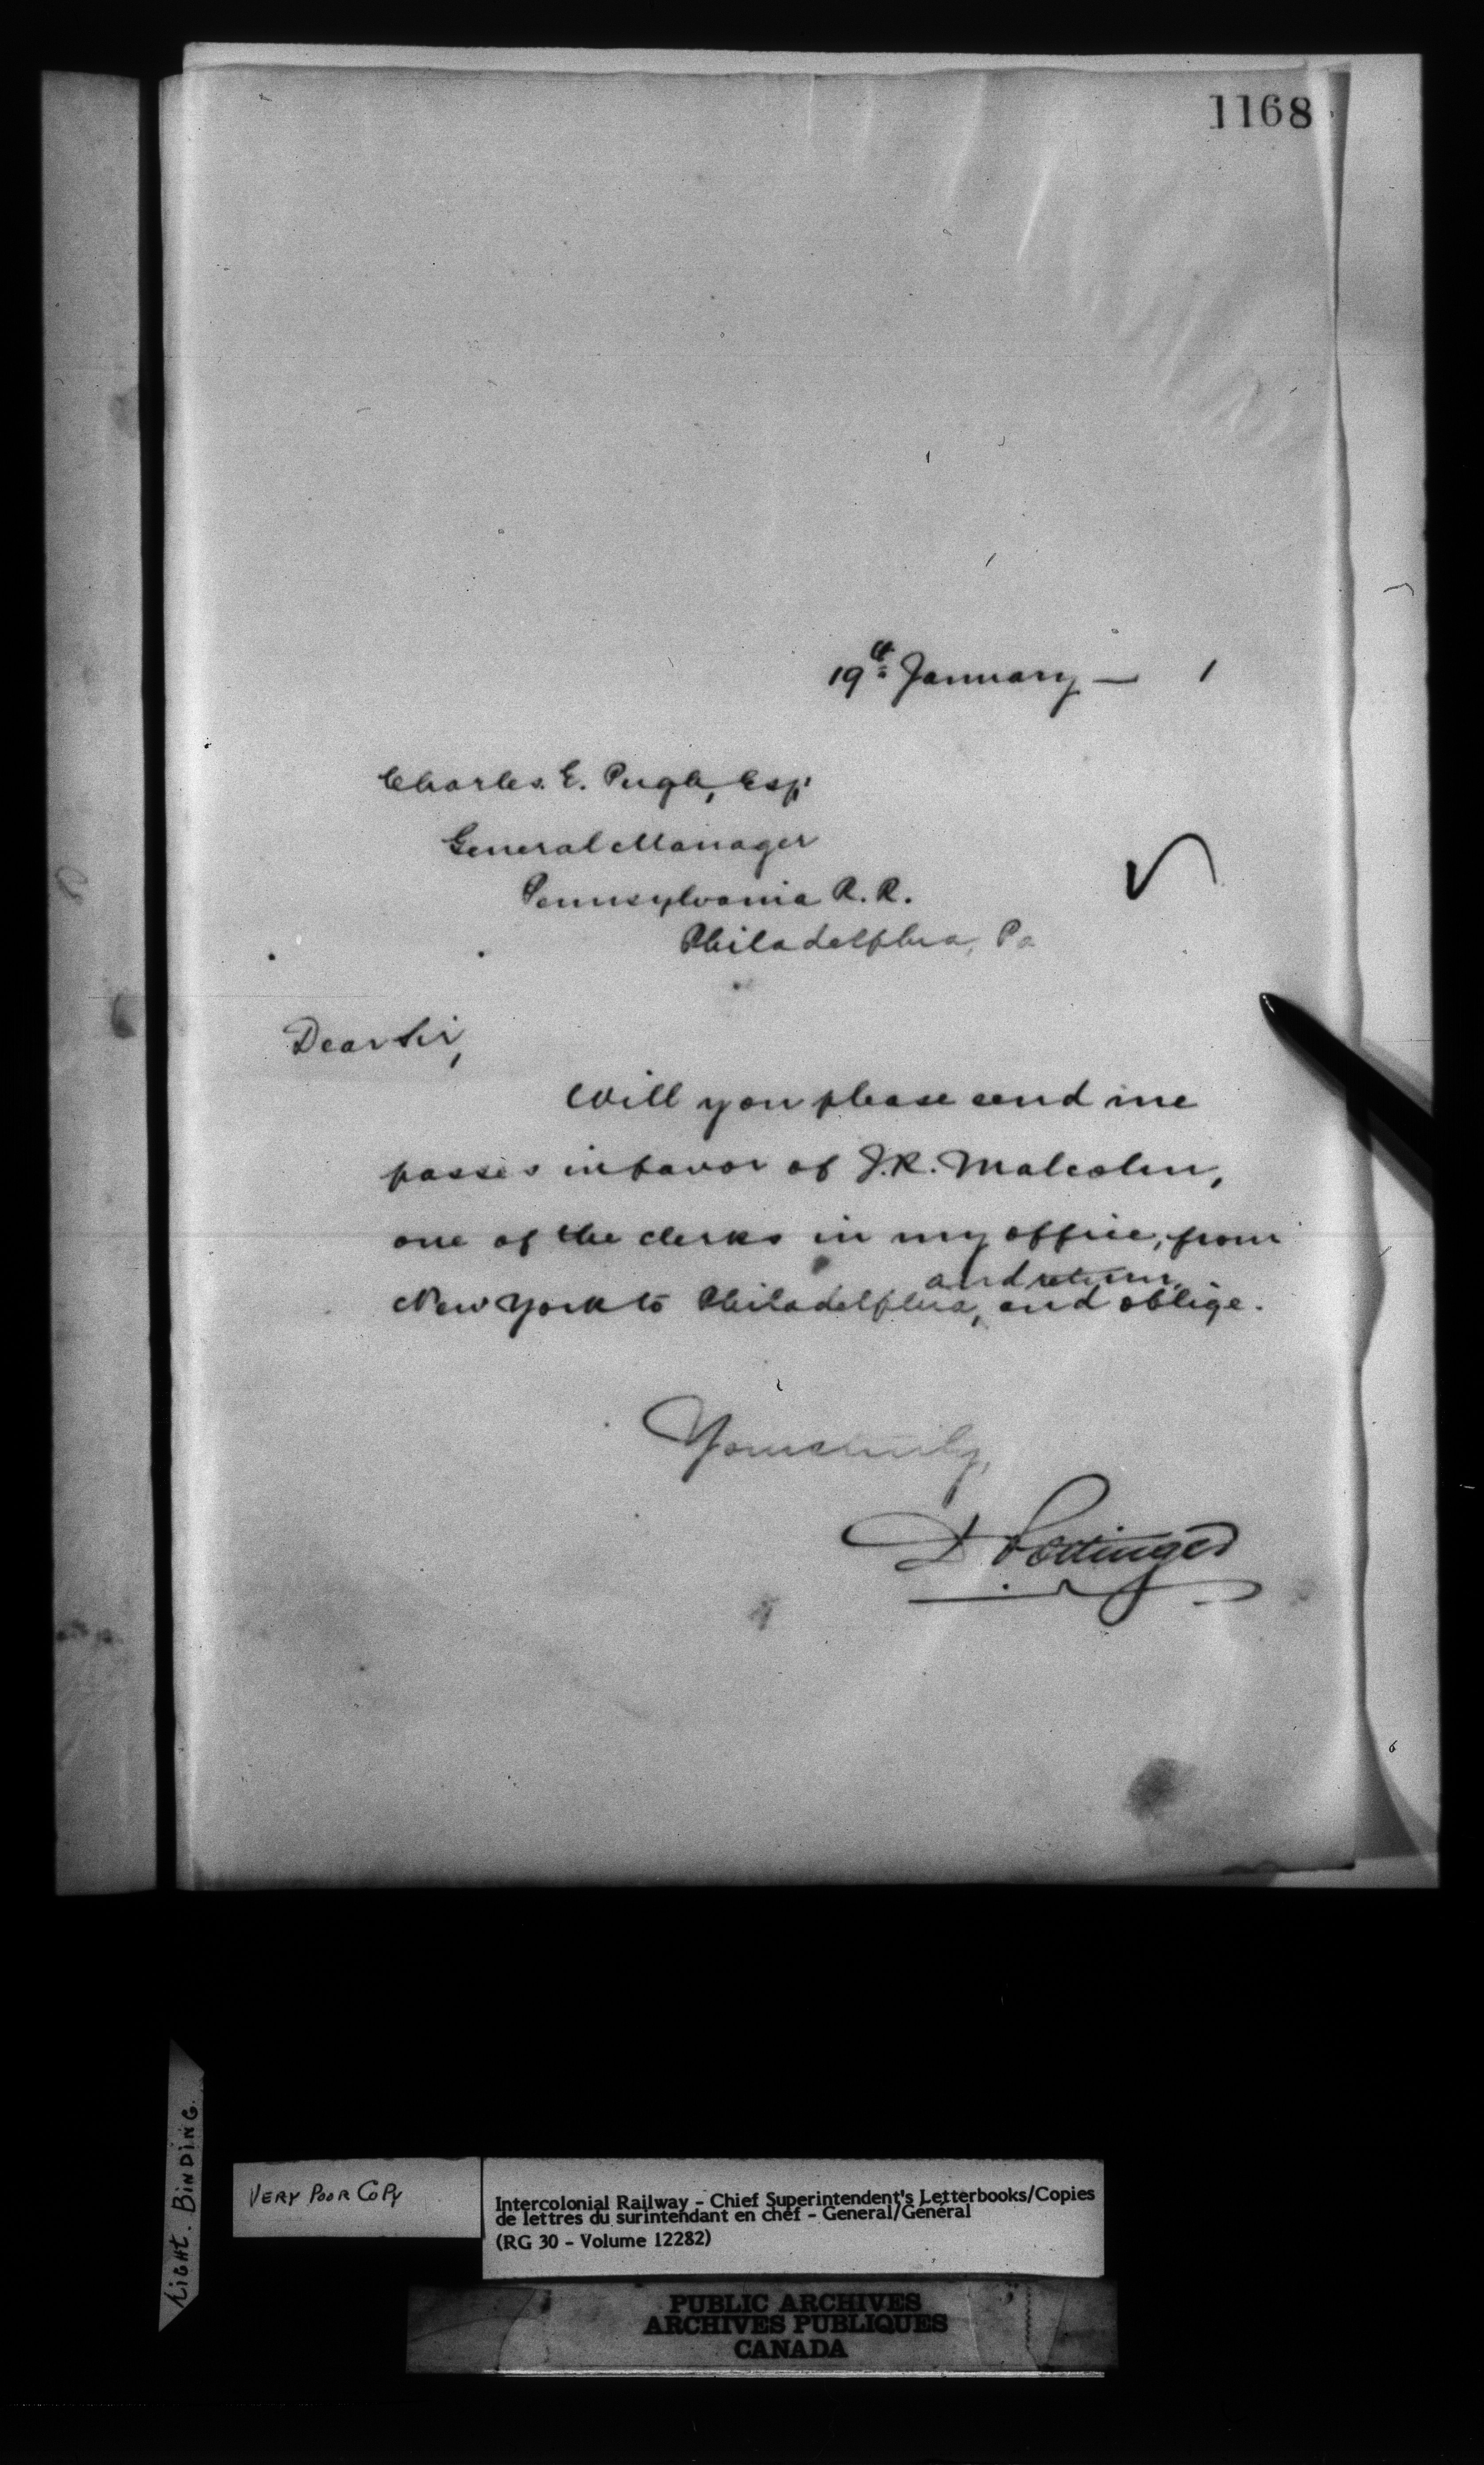 1168
19th January — 1
Charles. E. Pugh, Esq.
General Manager
Pennsylvania R. R.
Philadelphia, Pa
Dear Sir,
Will you please send me
passes in favor of J. R. Malcolm,
one of the clerks in my office, from
and return,
New York to Philadelphia, and oblige.
Yours truly,
D Pottinger
TIGHT. BINDING.
VERY POOR COPY
Intercolonial Railway – Chief Superintendent's Letterbooks/Copies
de lettres du surintendant en chef – General/Général
(RG 30 – Volume 12282)
PUBLIC ARCHIVES
ARCHIVES PUBLIQUES
CANADA